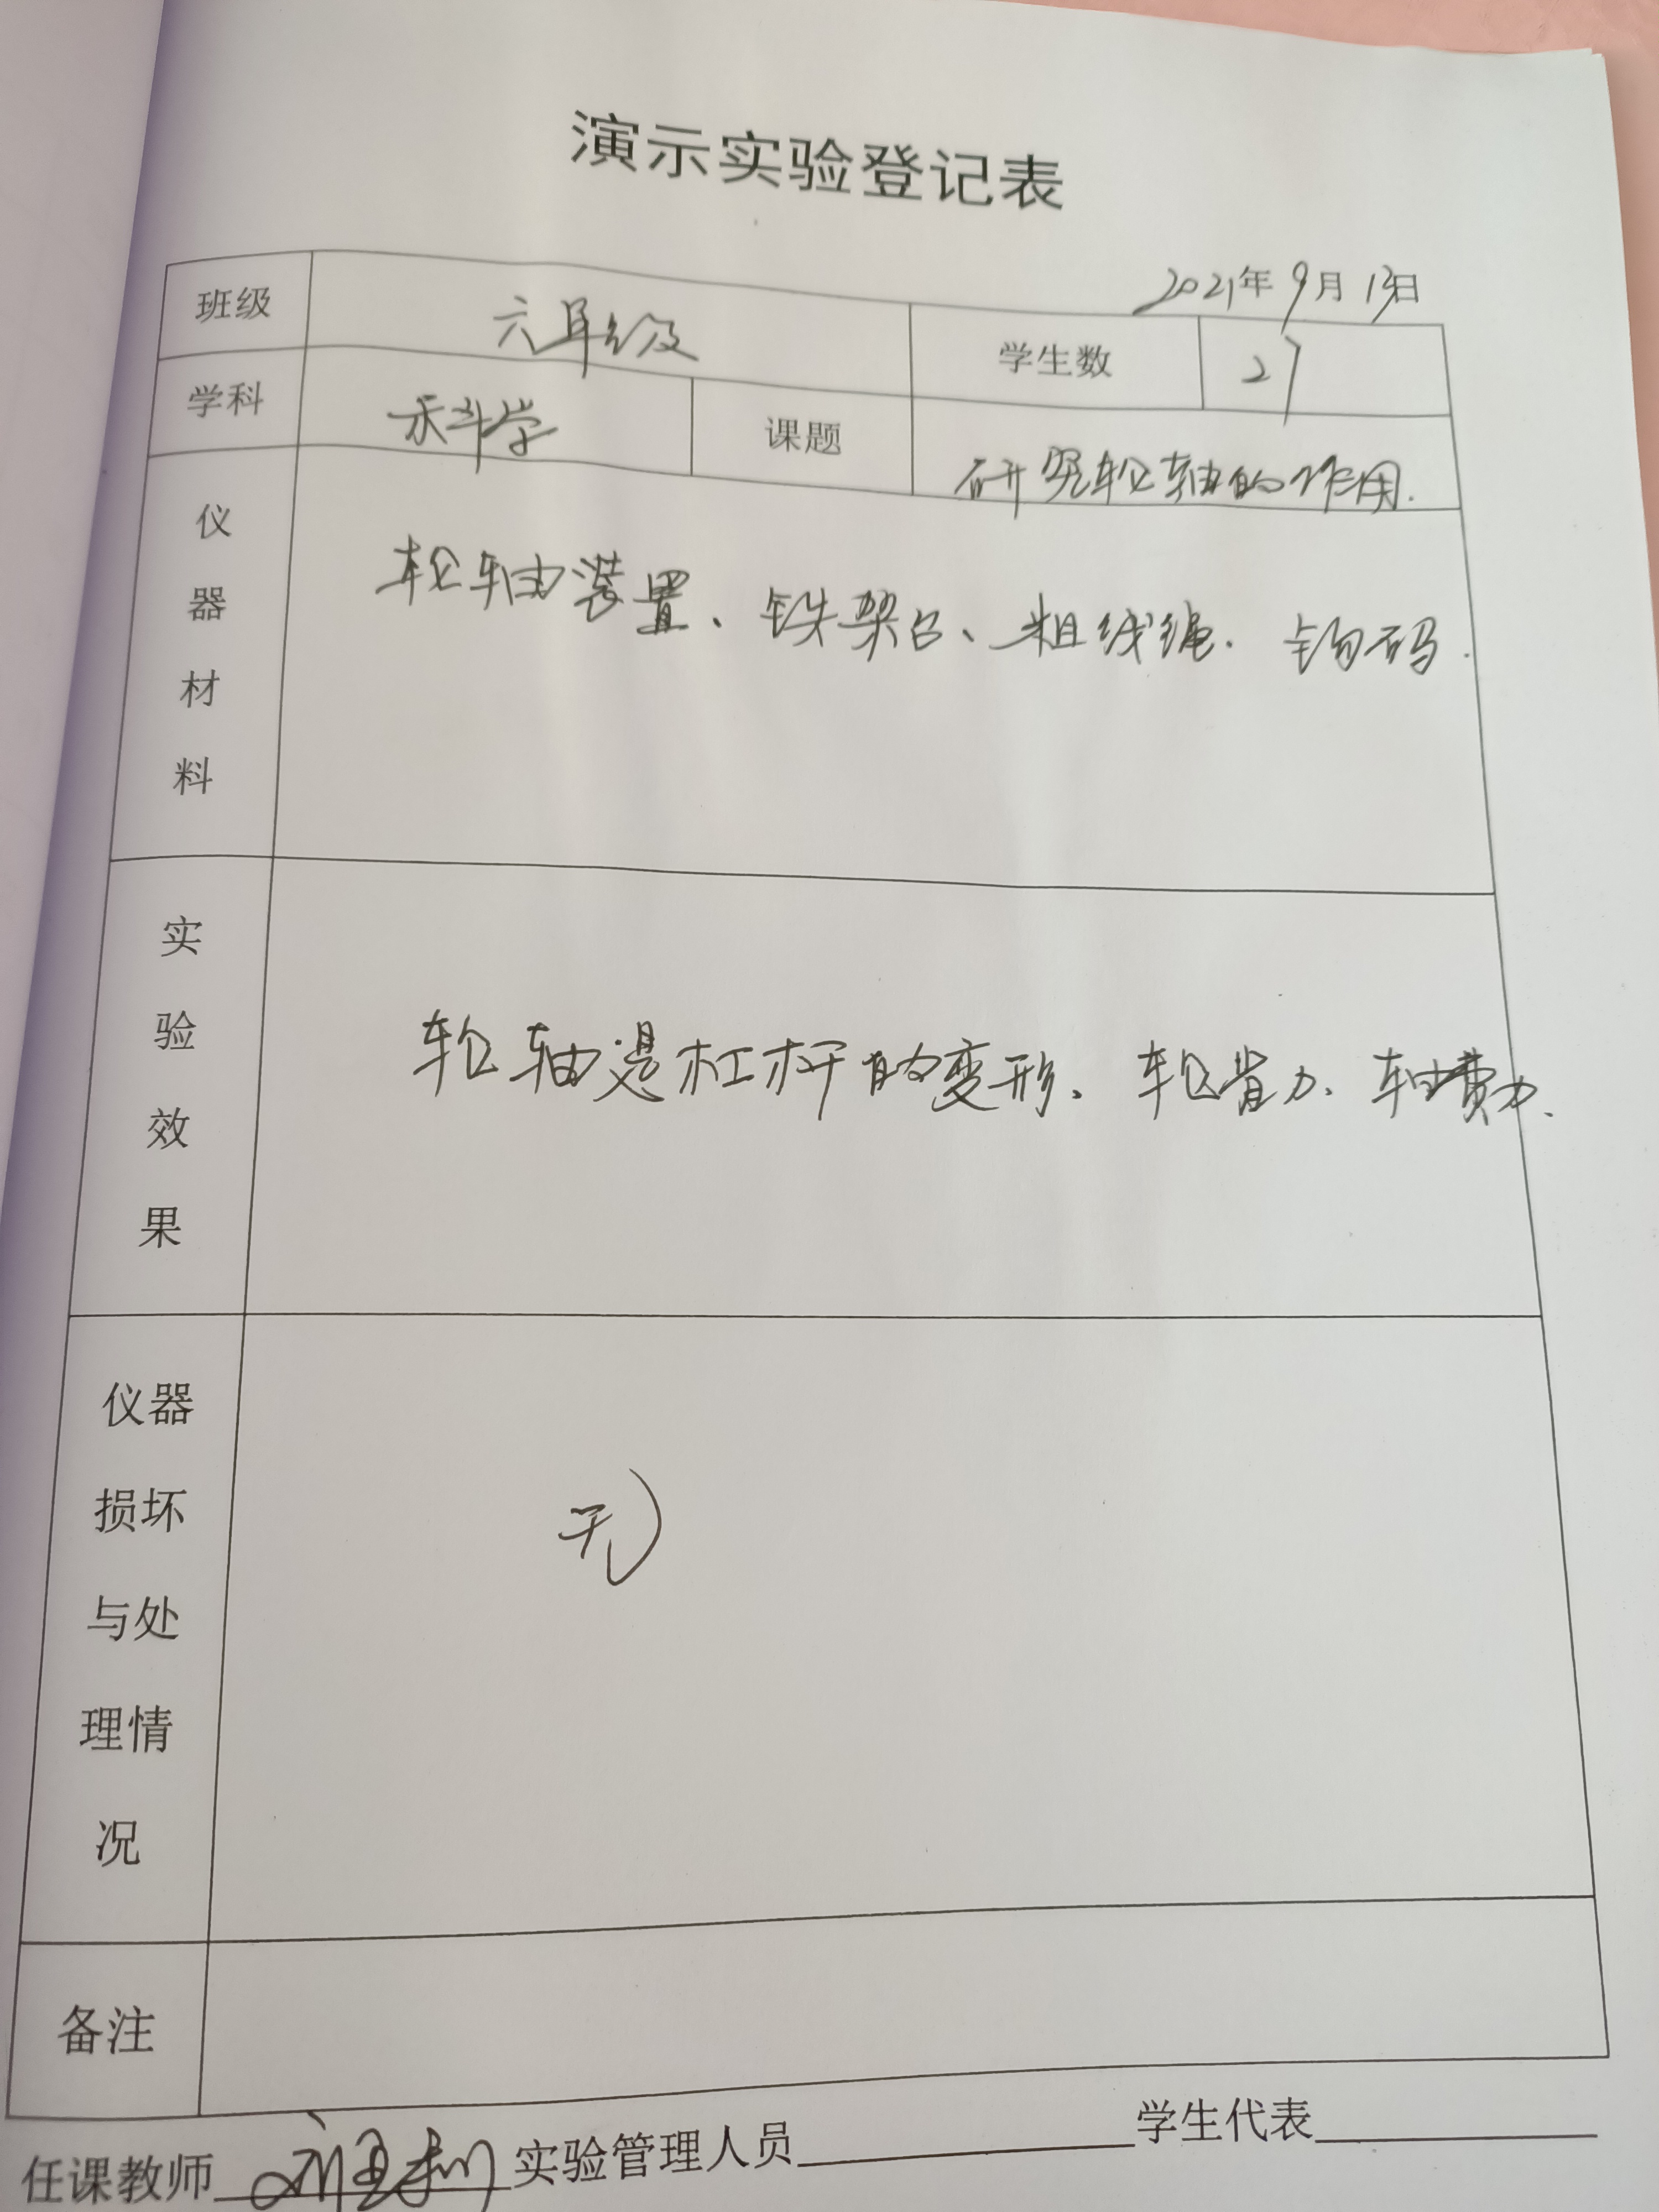 演示实验登记表
2021年9月13日
班级 六年级 学生数 27
学科 科学 课题 研究轮轴的作用.
仪器材料 轮轴装置、铁架台、粗线绳. 钩码.
实验效果 轮轴是杠杆的变形、轮省力. 轴费力.
仪器
损坏
与处 无
理情
况
备注
任课教师 实验管理人员 学生代表